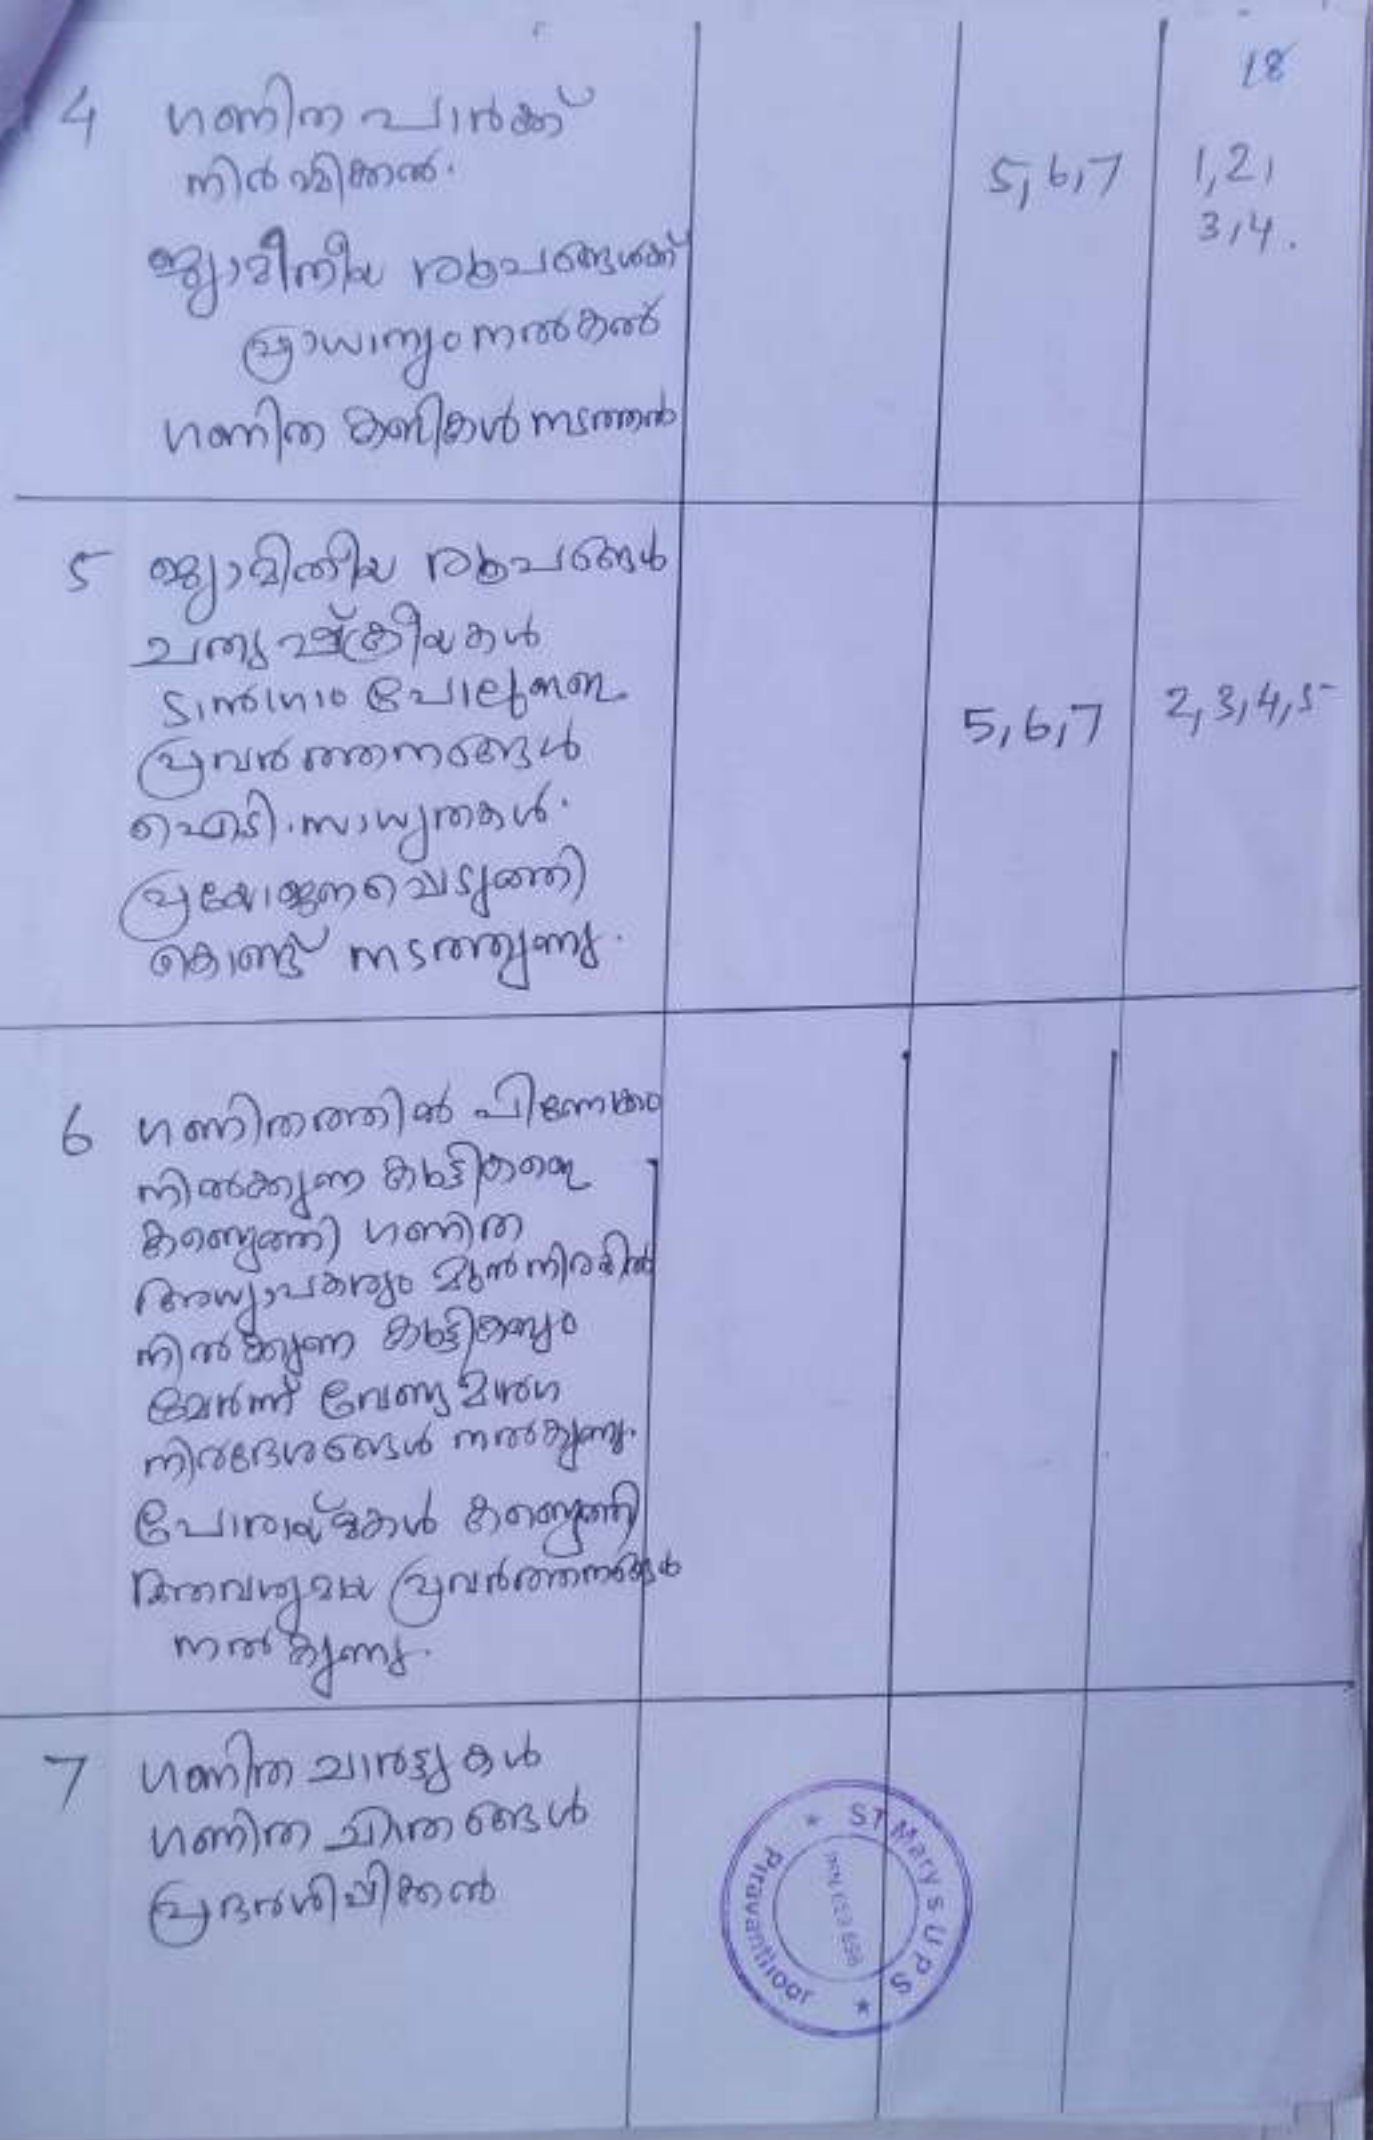 18
4 ഗണിത പാർക്ക്
നിർമ്മിക്കൽ.
5,6,7
1,2,
3,4.
ജ്യാമീതീയ രൂപങ്ങൾക്ക്
പ്രാധാന്യം നൽകൽ
ഗണിത കളികൾ നടത്തൽ
5 ജ്യാമിതീയ രൂപങ്ങൾ
ചതുഷ്ക്രീയകൾ
ടാൻഗ്രാം പോലുള്ള
5,6,7
2,3,4,5
പ്രവർത്തനങ്ങൾ
ഐടി. സാധ്യതകൾ.
പ്രയോജനപ്പെടുത്തി
കൊണ്ട് നടത്തുന്നു.
6 ഗണിതത്തിൽ പിന്നോക്കം
നിൽക്കുന്ന കുട്ടികളെ
കണ്ടെത്തി ഗണിത
അധ്യാപകരും മുൻനിരയിൽ
നിൽക്കുന്ന കുട്ടികളും
ചേർന്ന് വേണ്ട മാർഗ
നിർദേശങ്ങൾ നൽകുന്നു.
പോരായ്മകൾ കണ്ടെത്തി
ആവശ്യമായ പ്രവർത്തനങ്ങൾ
നൽകുന്നു.
7 ഗണിത ചാർട്ടുകൾ
ഗണിത ചിത്രങ്ങൾ
പ്രദർശിപ്പിക്കൽ
ST Mary s U P S
Piravanthoor